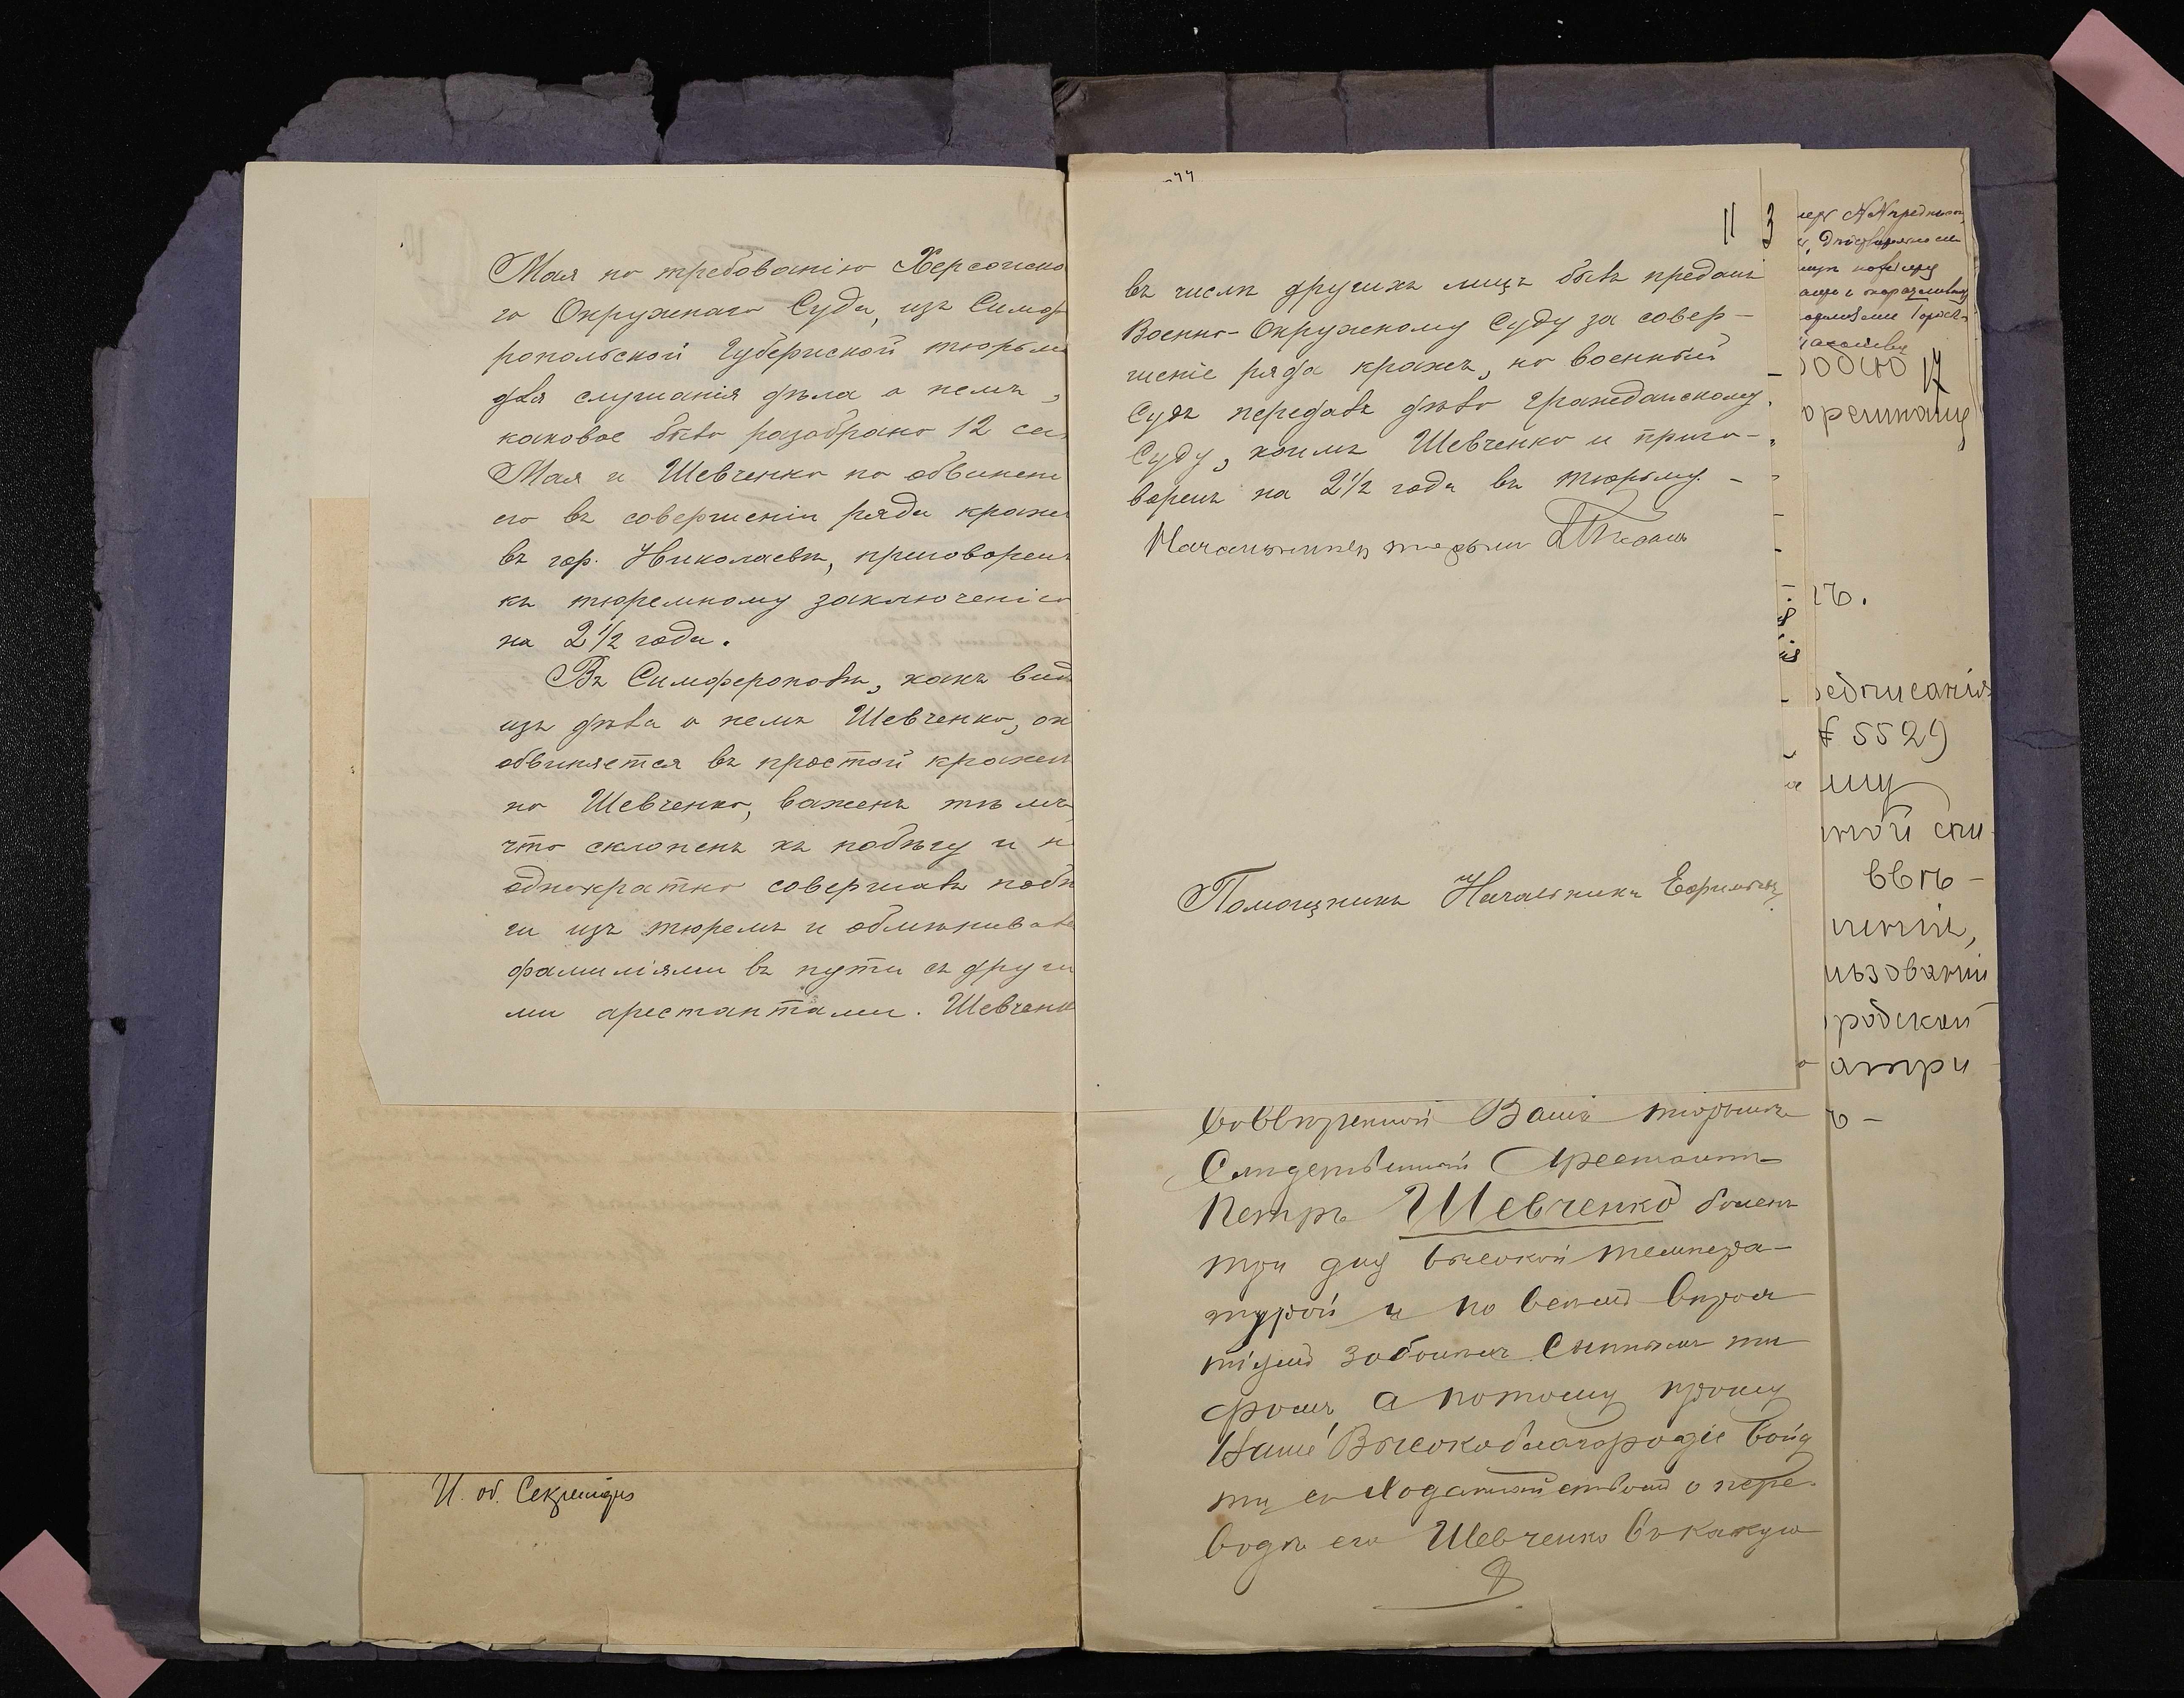 Мая по требованію Херсонска
го Окружнаго Суда, изъ Симф
ропольской Губернской тюрьм
для слушанія дѣла о немъ,
каковое было разобрано 12 се
Мая и Шевченко по обвинен
его въ совершеніи ряда кражъ
въ гор. Николаевѣ, приговоренъ
къ тюремному заключенію
на 2½ года.
Въ Симферополѣ, какъ вид
изъ дѣла о немъ Шевченко, он
обвиняется въ простой кражѣ
но Шевченко, важенъ тѣмъ,
что склоненъ къ побѣгу и н
однократно совершалъ побѣ
ги изъ тюремъ и обмѣнивал
фамиліями въ пути съ други
ми арестантами. Шевченк
И. об. Секретаря
11 3
въ числѣ другихъ лицъ былъ преданъ
Военно-Окружному Суду за совер-
шеніе ряда кражъ, но военный
Судъ передалъ дѣло гражданскому
Суду, коимъ Шевченко и приго-
воренъ на 2½ года въ тюрьму. -
Начальникъ тюрьмы
Помощникъ Начальника
Во ввѣренной Вамъ тюрьмѣ
Слѣдственный Арестантъ
Петръ Шевченко боленъ
три дня высокой темпера-
турой и по всей вѣроя
тію заболѣлъ Сыпнымъ ти
фомъ, а потому прошу
Ваше Высокоблагородіе войд
ти съ ходатайствомъ о пере-
водѣ его Шевченко въ какую
17
едписанія
№ 5529
му
ввѣ-
ользованій
родской